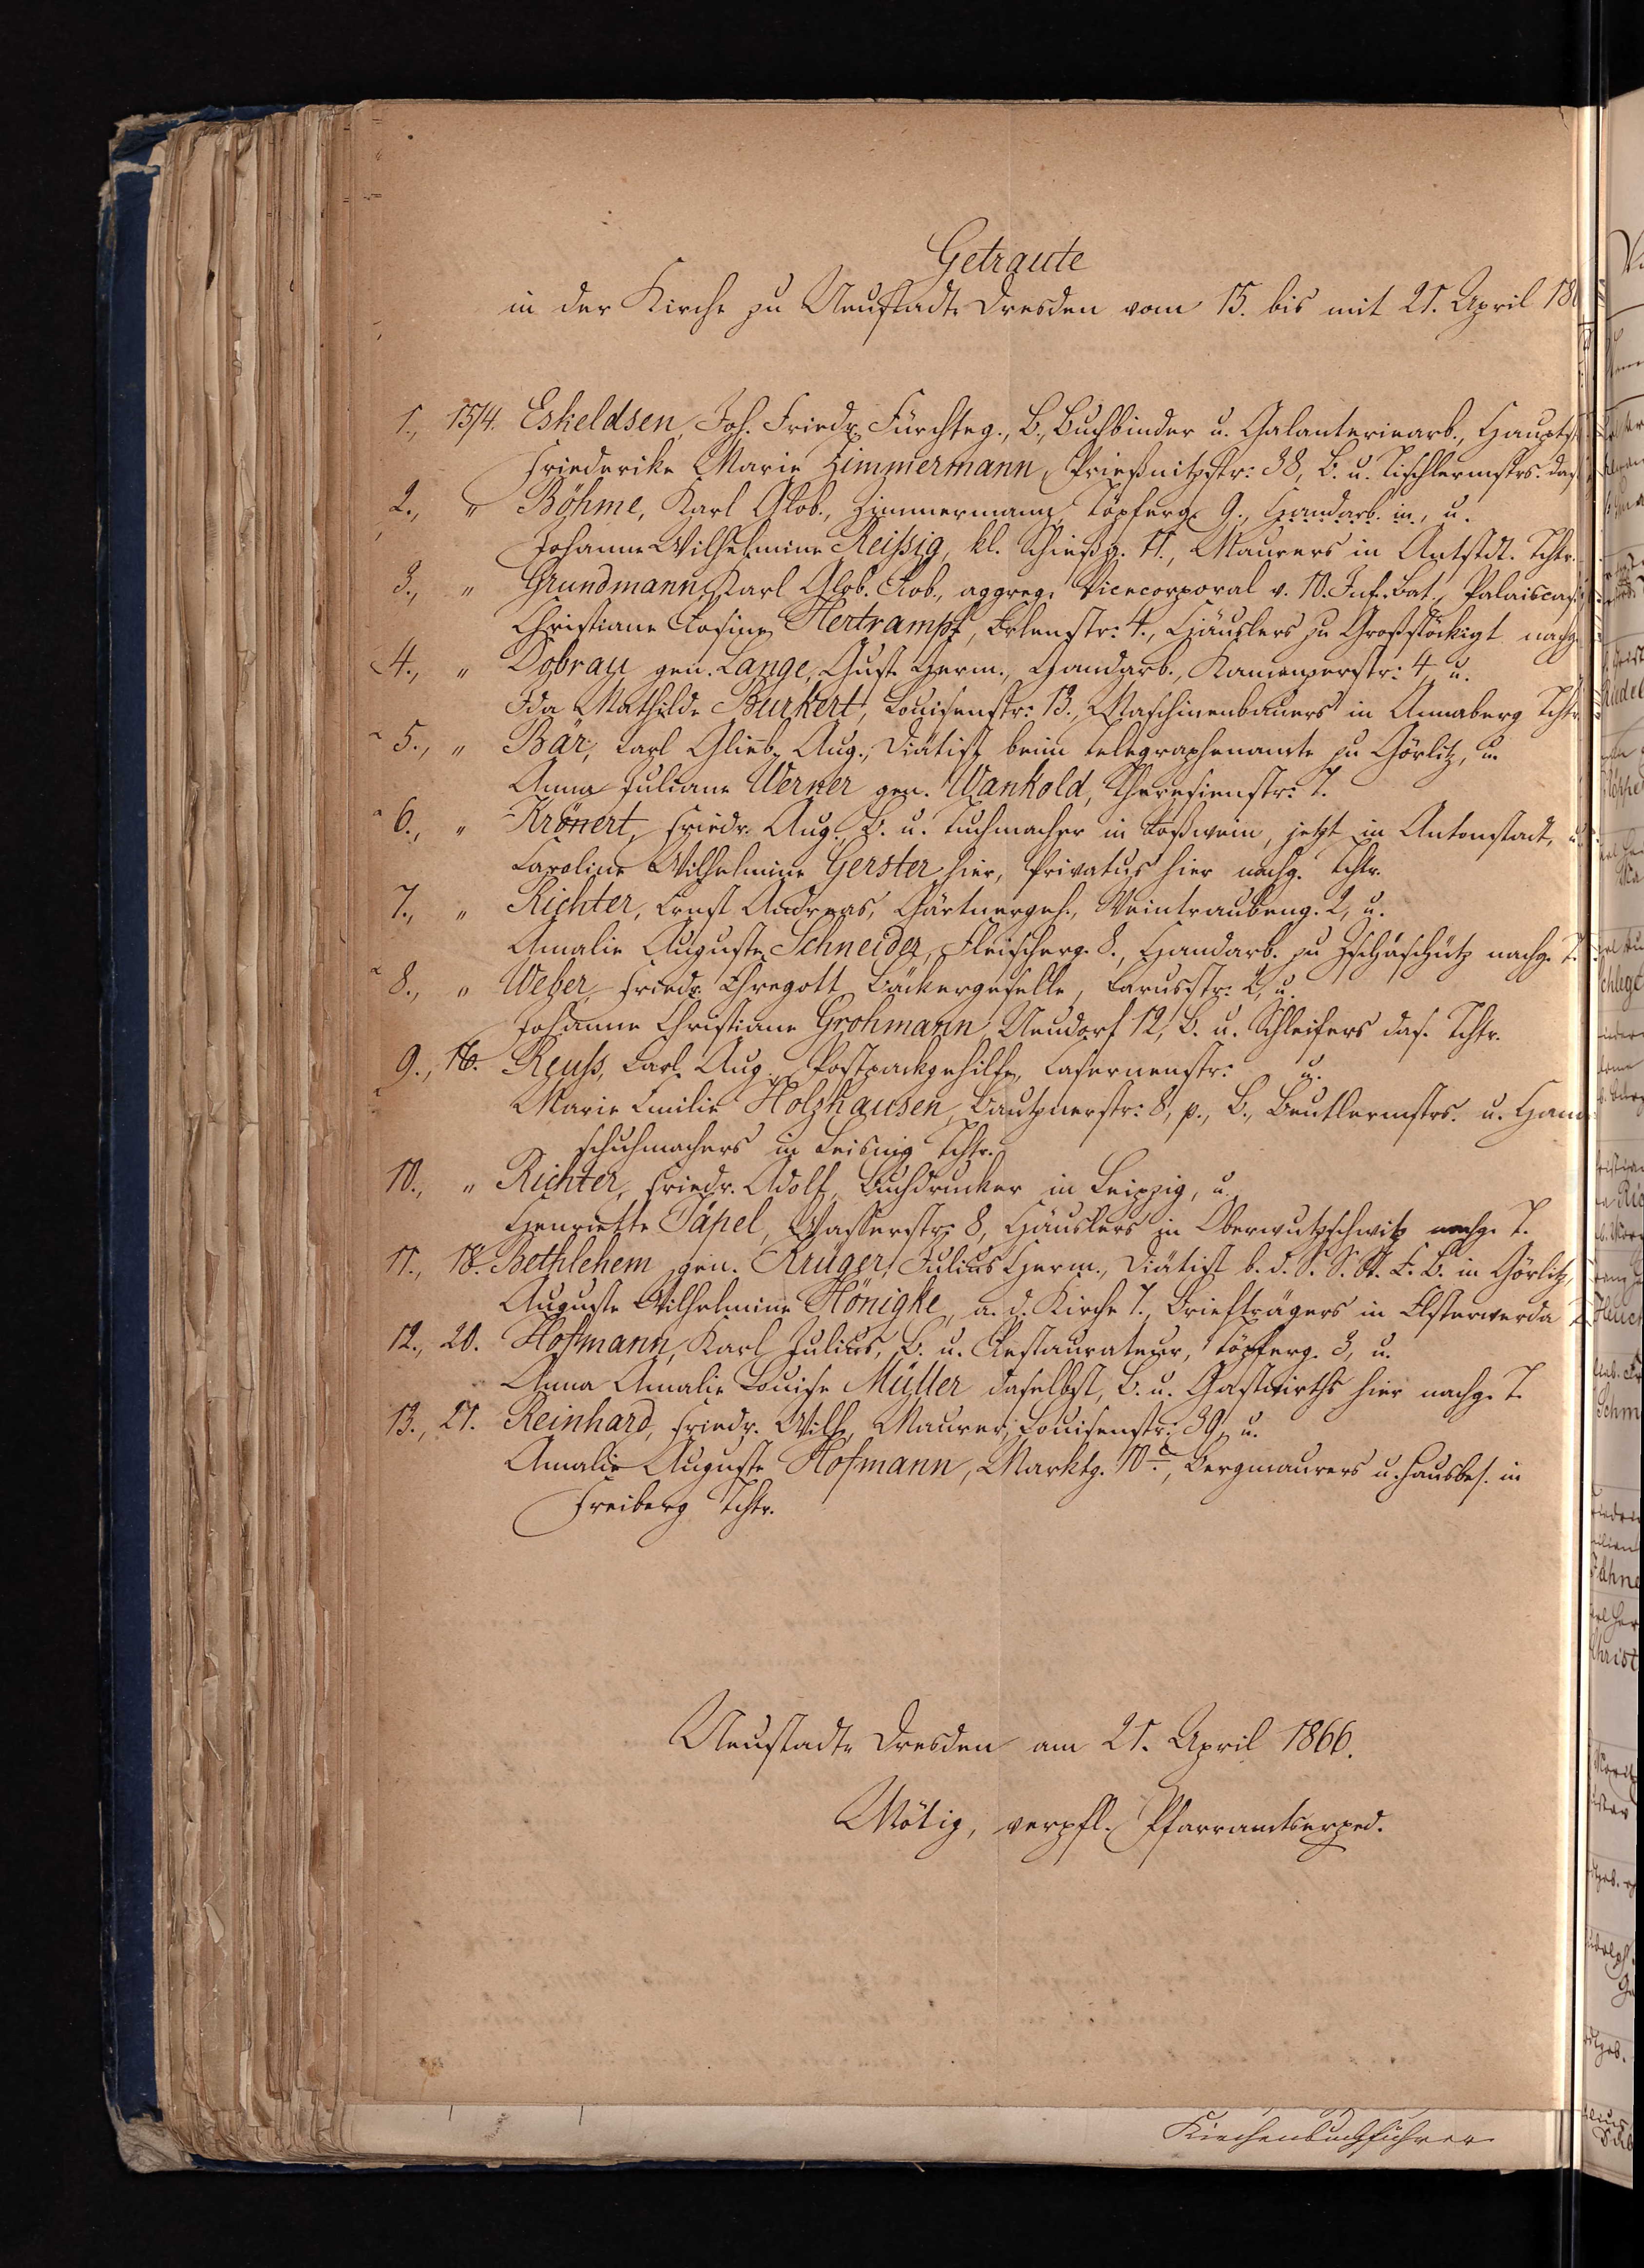 Getraute
in der Kirche zu Neustadt Dresden vom 15. bis mit 21. April 18
1., 15/4. Eskeldsen, Joh. Friedr. Fürchteg., B., Buchbinder u. Galanteriearb., Haupts
Friederike Marie Zimmermann, Prießnitzstr: 38, B. u. Tischlermstrs. das
2., " Böhme, Karl Glob., Zimmermann, Töpferg. 9., Handarb. in, u.
Johanne Wilhelmine Reissig, kl. Schießg. 11., Maurers in Antstdt. Tchtr.
3., " Grundmann, Karl Glob. Rob., aggreg. Vicecorporal v. 10. Inf. Bat., Palaiscas.
Christiane Rosine Hertrampf, Erlenstr: 4., Häuslers zu Großstöckigt nachg.
4., " Dobrau gen. Lange, Gust. Herm., Handarb., Kamenzerstr: 4, u.
Ida Mathilde Burkert, Louisenstr: 13., Maschinenbauers in Annaberg Tchtr.
5., " Bär, Carl Glieb. Aug., Diätist beim Telegraphenamte zu Görlitz, u.
Anna Juliane Werner gen. Wankold, Theresienstr: 7.
6., " Krönert, Friedr. Aug., B. u. Tuchmacher in Roßwein, jetzt in Antonstadt, u.
Caroline Wilhelmine Gerster hier, Privatus hier nachg. Tchtr.
7., " Richter, Ernst Andreas, Gärtnergeh., Weintraubeng. 2, u.
Amalie Auguste Schneider, Fleischerg. 8., Handarb. zu Zschäschütz nachg. T.
8., " Weber, Friedr. Ehregott Bäckergeselle, Carusstr: 2, u.
Johanne Christiane Grohmann, Neudorf 12, B. u. Schleifers das. Tchtr.
9., 16. Reuss, Carl Aug., Postpackgehilfe, Casernenstr: u.
Marie Emilie Holzhausen, Bautznerstr: 8, p., B., Beutlermstrs. u. Hand
schuhmachers in Leisnig Tchtr.
10., " Richter, Friedr. Adolf, Buchdrucker in Leipzig, u.
Henriette Täpel, Wasserstr: 8, Häuslers in Oberwutzschwitz nachg. T.
11., 18. Bethlehem gen. Krüger, Julius Herm., Diätist b. d. S. S. St. E. B. in Görlitz,
Auguste Wilhelmine Hönigke, a. d. Kirche 7., Briefträgers in Elsterwerda T.
12., 20. Hofmann, Karl Julius, B. u. Restaurateur, Töpferg. 3, u.
Anna Amalie Louise Müller daselbst, B. u. Gastwirths hier nachg. T.
13., 21. Reinhard, Friedr. Wilh., Maurer, Louisenstr: 39, u.
Amalie Auguste Hofmann, Marktg. 10, Bergmaurers u. Hausbes. in
Freiberg Tchtr.
Neustadt Dresden am 21. April 1866.
Mötig, verpfl. Pfarramtsexped.
Kirchenbuchführer